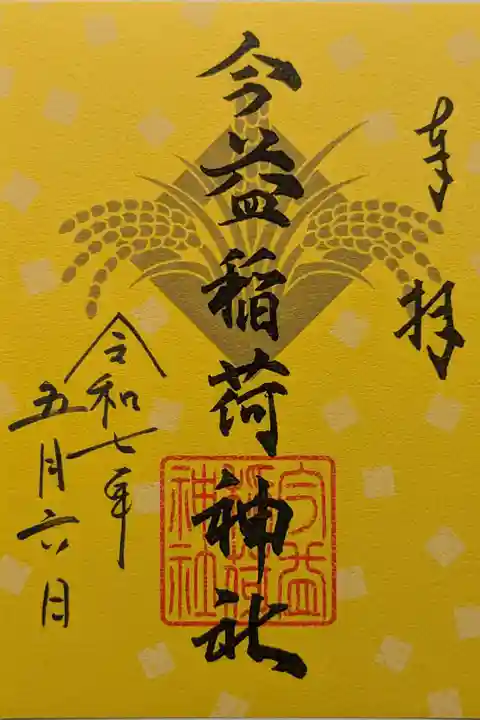 奉拝
今益稲荷神社
今益稲荷神社
令和七年
五月六日